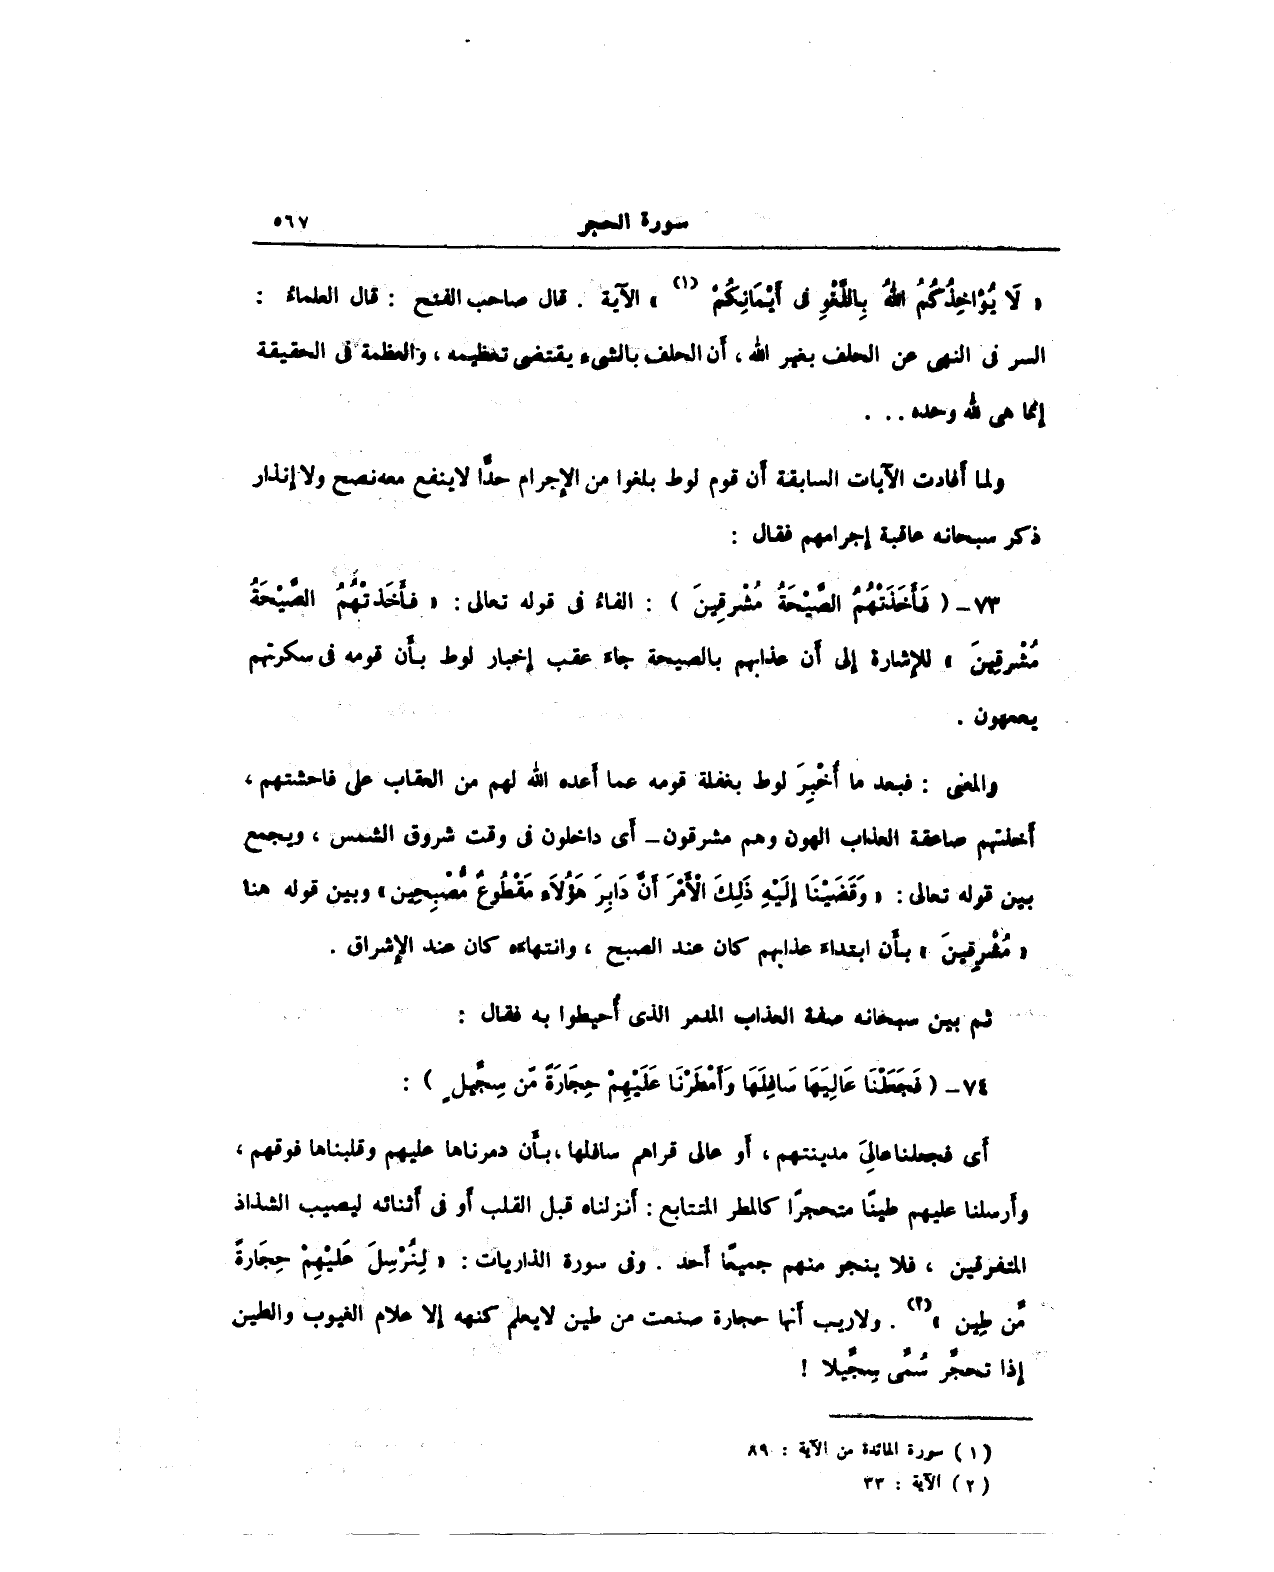 سورة الحجر ٥٦٧
« لَا يُؤَاخِذُكُمُ اللهُ بِاللَّغْوِ فى أَيْمَانِكُمْ (١) » الآية . قال صاحب الفتح : قال العلماءُ :
السر فى النهى عن الحلف بغير الله ، أن الحلف بالشىء يقتضى تعظيمه ، والعظمة فى الحقيقة
إنما هى لله وحده . . .
ولما أفادت الآيات السابقة أن قوم لوط بلغوا من الإجرام حدًّا لاينفع معه نصح ولا إنذار
ذكر سبحانه عاقبة إجرامهم فقال :
٧٣ــ ( فَأَخَذَتْهُمُ الصَّيْحَةُ مُشْرِقِينَ ) : الفاءُ فى قوله تعالى : « فَأَخَذتْهُمُ الصَّيْحَةُ
مُشْرِقِينَ » للإشارة إلى أن عذابهم بالصيحة جاءَ عقب إخبار لوط بأن قومه فى سكرتهم
يعمهون .
والمعنى : فبعد ما أُخْبِرَ لوط بغفلة قومه عما أعده الله لهم من العقاب على فاحشتهم ،
أخذتهم صاعقة العذاب الهون وهم مشرقون ــ أى داخلون فى وقت شروق الشمس ، ويجمع
بين قوله تعالى : « وَقَضَيْنَا إِلَيْهِ ذَلِكَ الْأَمْرَ أَنَّ دَابِرَ هَؤُلَاءِ مَقْطُوعٌ مُّصْبِحِين » وبين قوله هنا
« مُشْرِقِينَ » بأن ابتداء عذابهم كان عند الصبح ، وانتهاءه كان عند الإشراق .
ثم بين سبحانه صفة العذاب المدمر الذى أُحيطوا به فقال :
٧٤ــ ( فَجَعَلْنَا عَالِيَهَا سَافِلَهَا وَأَمْطَرْنَا عَلَيْهِمْ حِجَارَةً مِّن سِجِّيلٍ ) :
أى فجعلنا عالىَ مدينتهم ، أو عالى قراهم سافلها ، بأن دمرناها عليهم وقلبناها فوقهم ،
وأرسلنا عليهم طينًا متحجرًا كالمطر المتتابع : أنزلناه قبل القلب أو فى أثنائه ليصيب الشذاذ
المتفرقين ، فلا ينجو منهم جميعًا أحد . وفى سورة الذاريات : « لِنُرْسِلَ عَلَيْهِمْ حِجَارَةً
مِّن طِين » (٢) . ولاريب أنها حجارة صنعت من طين لايعلم كنهه إلا علام الغيوب والطين
إذا تحجَّر سُمِّى سِجِّيلا !
( ١ ) سورة المائدة من الآية : ٨٩
( ٢ ) الآية : ٣٣